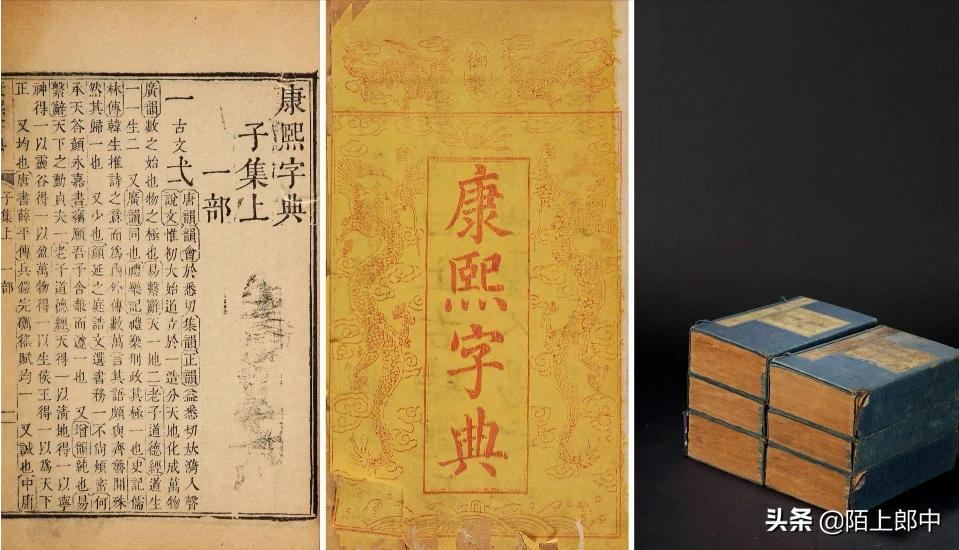 康熙字典
子集上
一部
一 古文弌
唐韻韻會於悉切集韻正韻益悉切𠀤漪入聲
說文惟初大始道立於一造分天地化成萬物
廣韻數之始也物之極也易繫辭天一地二老子道德經道生
一一生二 又廣韻同也禮樂記禮樂刑政其極一也史記儒
林傳韓生推詩之意而爲內外傳數萬言其語頗與齊魯閒殊
然其歸一也 又少也顏延之庭誥文選書務一不尙煩密何
承天答顏永嘉書竊願吾子舍兼而遵一也 又增韻純也易
繫辭天下之動貞夫一老子道德經天得一以淸地得一以寧
神得一以靈谷得一以盈萬物得一以生侯王得一以爲天下
正 又均也唐書薛平傳兵鎧完礪徭賦均一 又誠也中庸
子集上 一部 一
御製
康熙字典
头条 @陌上郎中